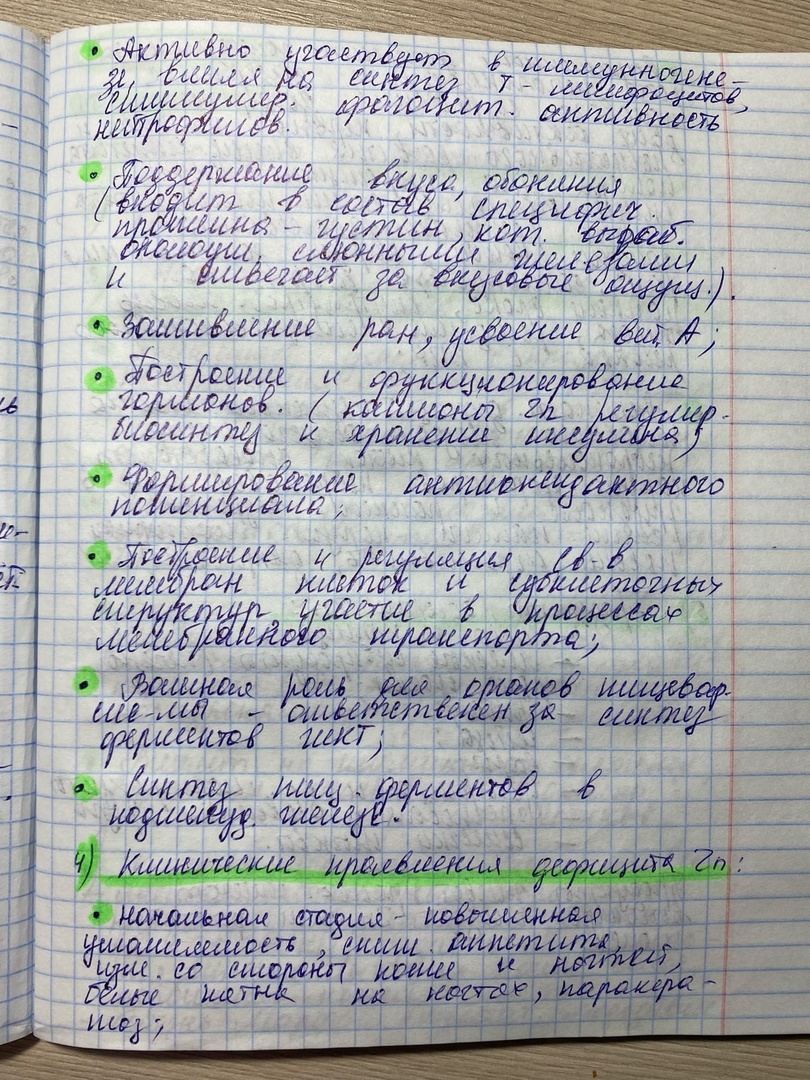 • Активно участвует в иммунногене-
зе, влияя на синтез Т-лимфоцитов,
стимулир. фагоцит. активность
нейтрофилов.
• Поддержание вкуса, обоняния
(входит в состав специфич.
протеина - густин, кот. выраб.
околоуш. слюнными железами
и отвечает за вкусовые ощущ.).
• Заживление ран, усвоение вит. А;
• Построение и функционирование
гормонов. (катионы Zn регулир.
биосинтез и хранение инсулина)
• Формирование антиоксидантного
потенциала;
• Построение и регуляция св-в
мембран клеток и субклеточных
структур, участие в процессах
мембранного транспорта;
• Важная роль для органов пищевар.
сис-мы - ответственен за синтез
ферментов ЖКТ;
• Синтез пищ. ферментов в
поджелуд. железе.
4) Клинические проявления дефицита Zn:
• начальная стадия - повышенная
утомляемость, сниж. аппетита,
изм. со стороны кожи и ногтей,
белые пятна на ногтях, паракера-
тоз;